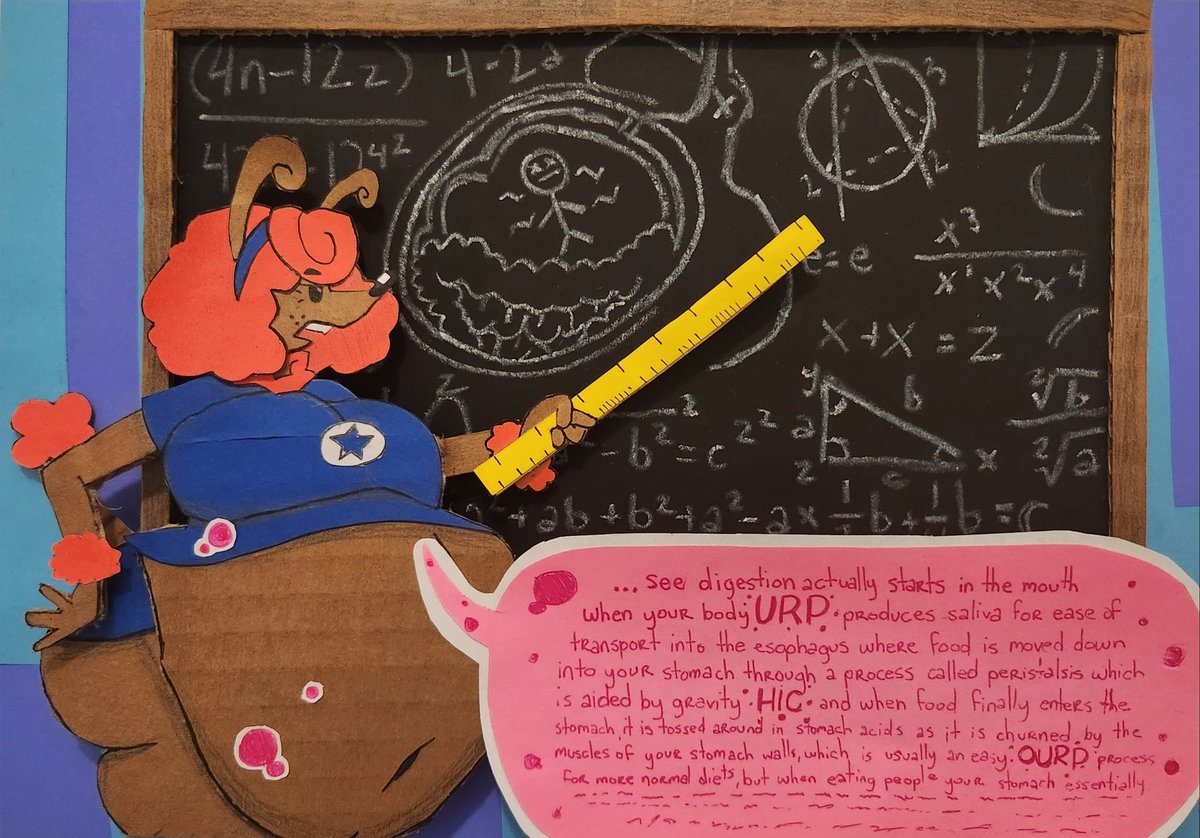 (4n-12z)
4-2a
x
3
2
2
e=e
x³
x¹ x² x⁴
x+x = z
y
b
a
z
c
x
²√b
²√a
-b²=c
z²
²+ab+b²+a²-ax ½b+½b=c
... see digestion actually starts in the mouth
when your body •URP• produces saliva for ease of
transport into the esophagus where food is moved down
into your stomach through a process called peristalsis which
is aided by gravity •HIC• and when food finally enters the
stomach, it is tossed around in stomach acids as it is churned by the
muscles of your stomach walls, which is usually an easy •OURP• process
for more normal diets, but when eating people your stomach essentially